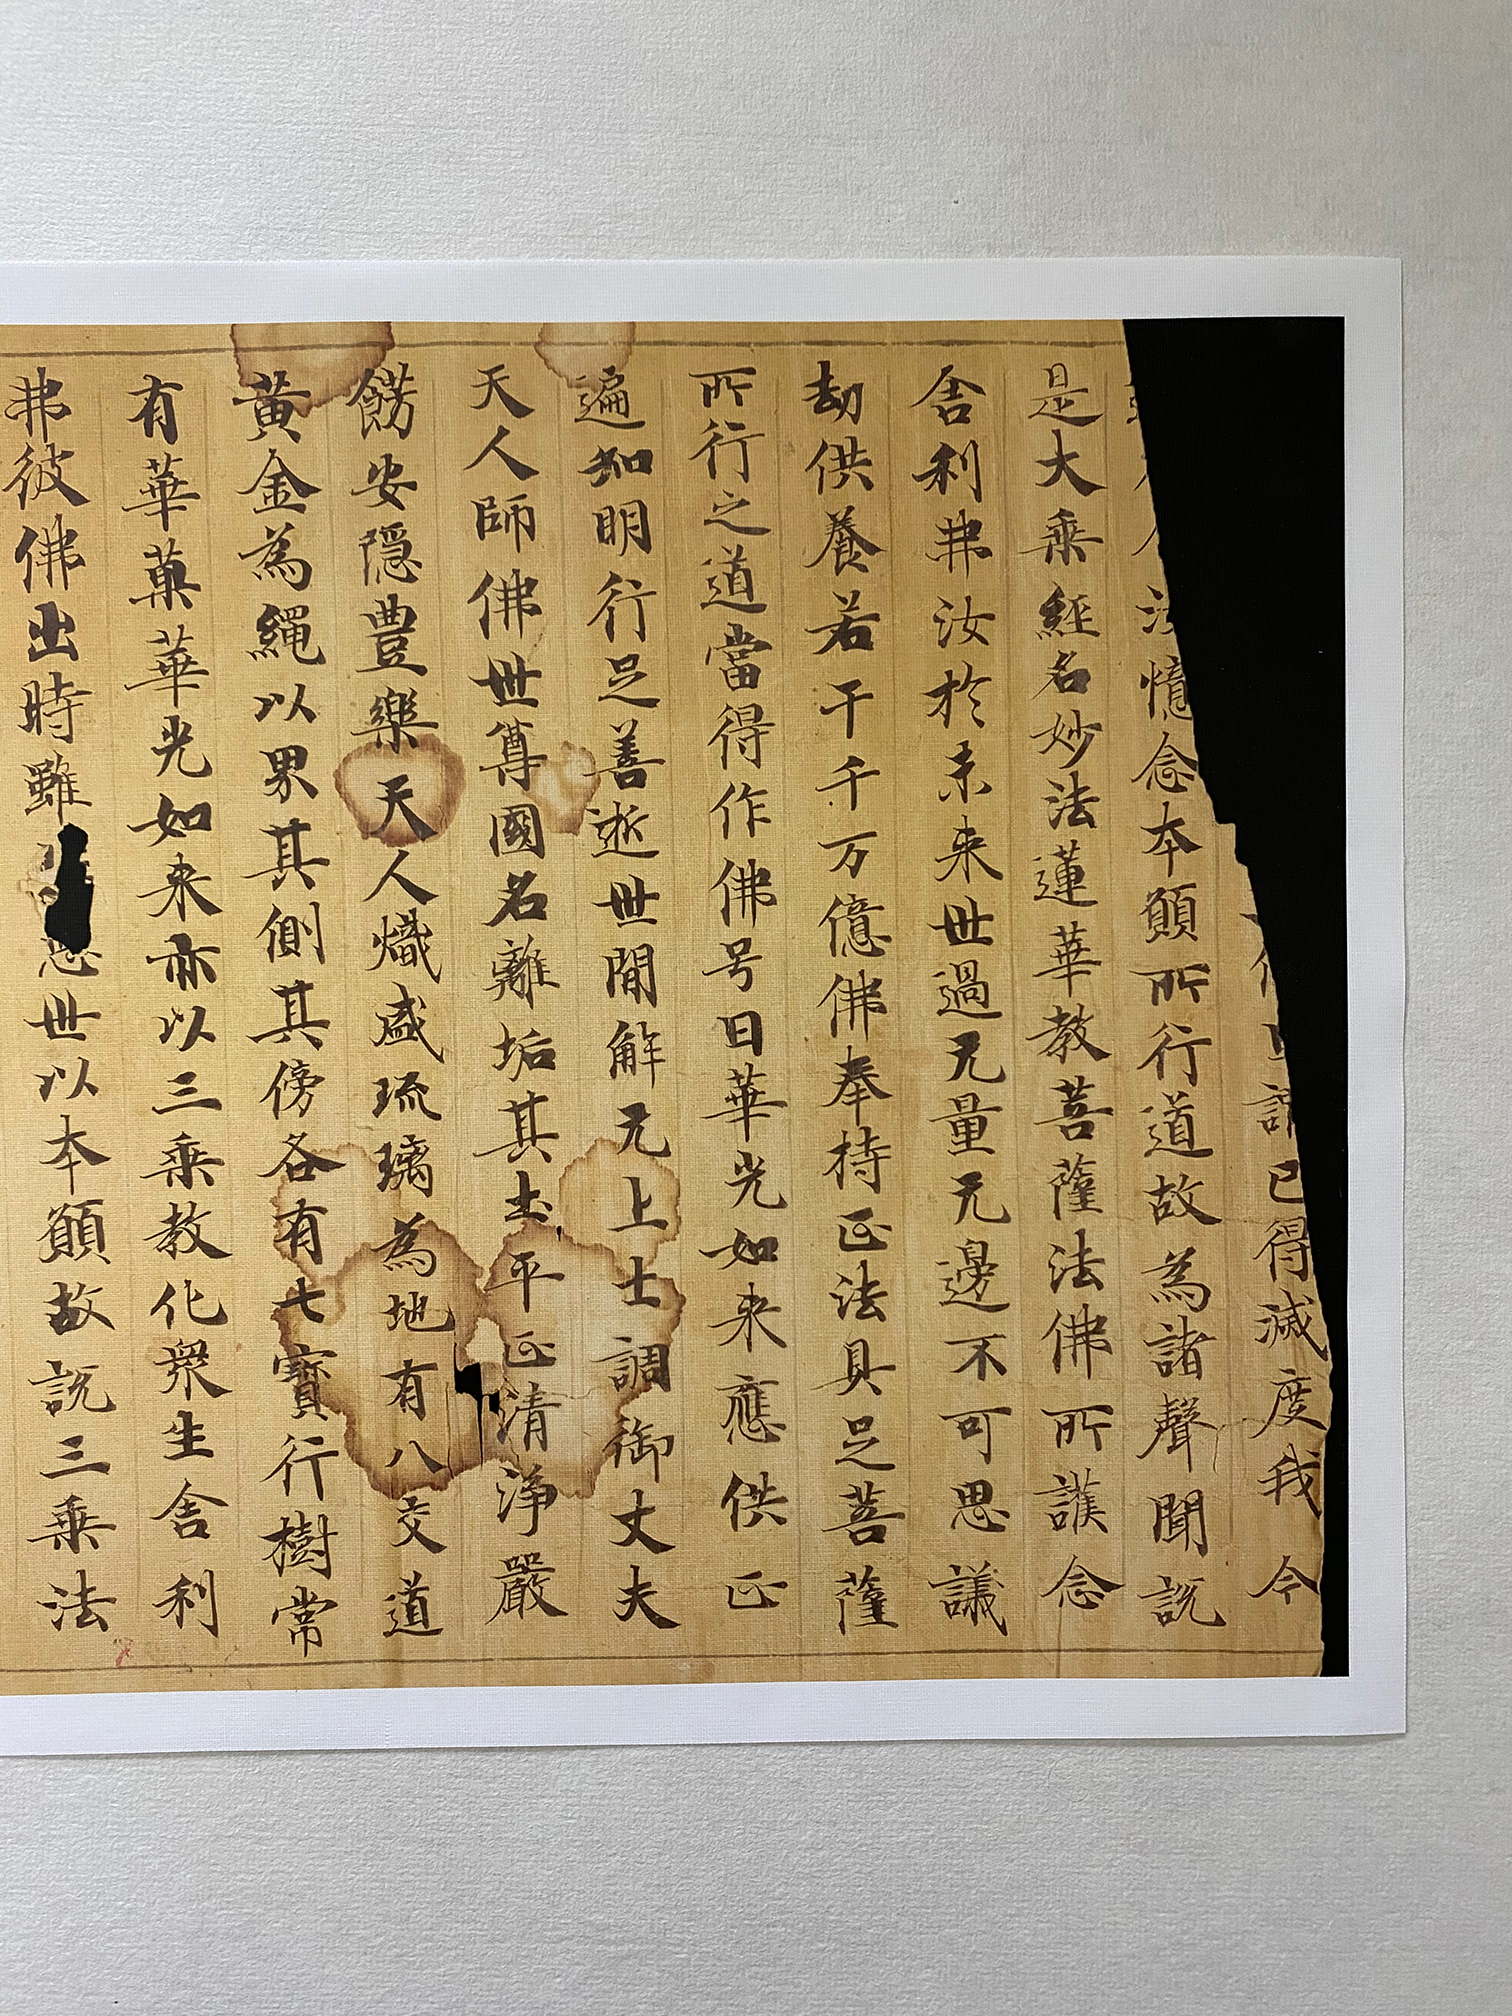 已得滅度我今
憶念本願所行道故為諸聲聞説
是大乘經名妙法蓮華教菩薩法佛所護念
舍利弗汝於未來世過无量无邊不可思議
劫供養若干千万億佛奉持正法具足菩薩
所行之道當得作佛号曰華光如来應供正
遍知明行足善逝世間解无上士調御丈夫
天人師佛世尊國名離垢其土平正清淨嚴
餝安隱豊樂天人熾盛琉璃為地有八交道
黄金為繩以界其側其傍各有七寳行樹常
有華菓華光如来亦以三乘教化衆生舍利
弗彼佛出時雖惡世以本願故説三乘法